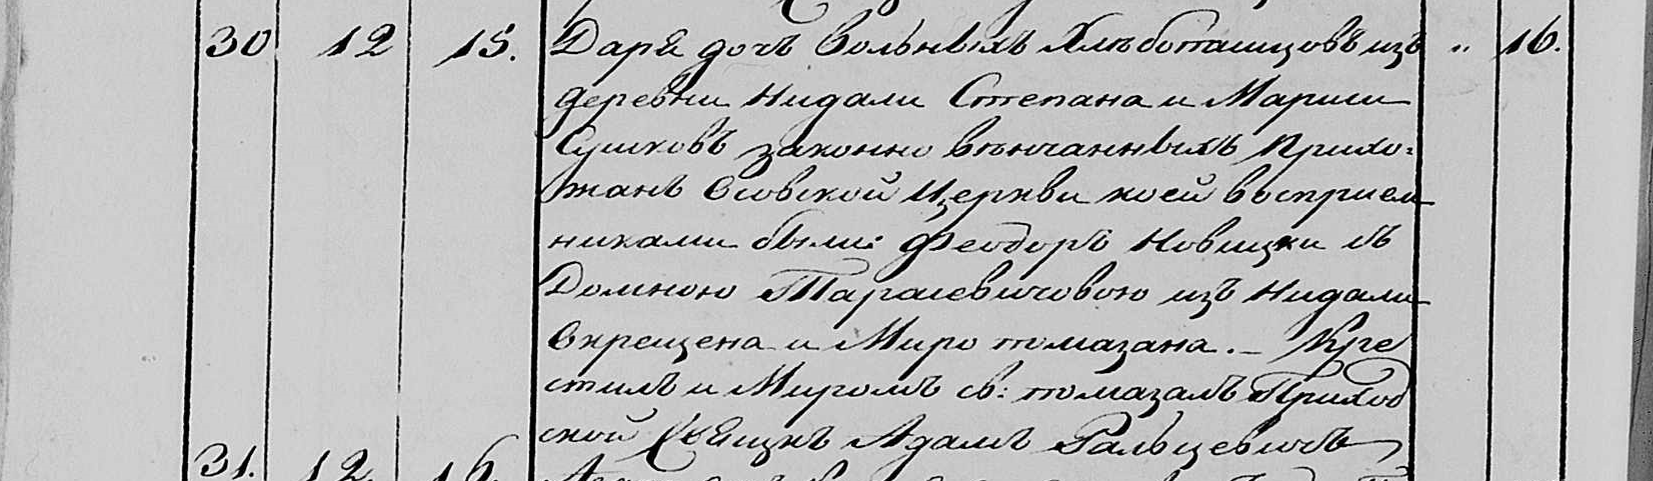 30 12 15. Дарꙗ дочь вольныхъ Хлѣбопашцовъ изъ " 16.
деревни Нидали Степана и Марыи
Сушковъ законно вѣнчанныхъ прихо=
жанъ Осовской Церкви коей восприем
никами были: Феодоръ Новицки съ
Домною Тарасевичовою изъ Нидали
окрещена и Миро помазана. – Кре
стилъ и Миромъ св: помазалъ Приход
ской Свящнкъ Адамъ Гальцевичъ
31. 12. 16.